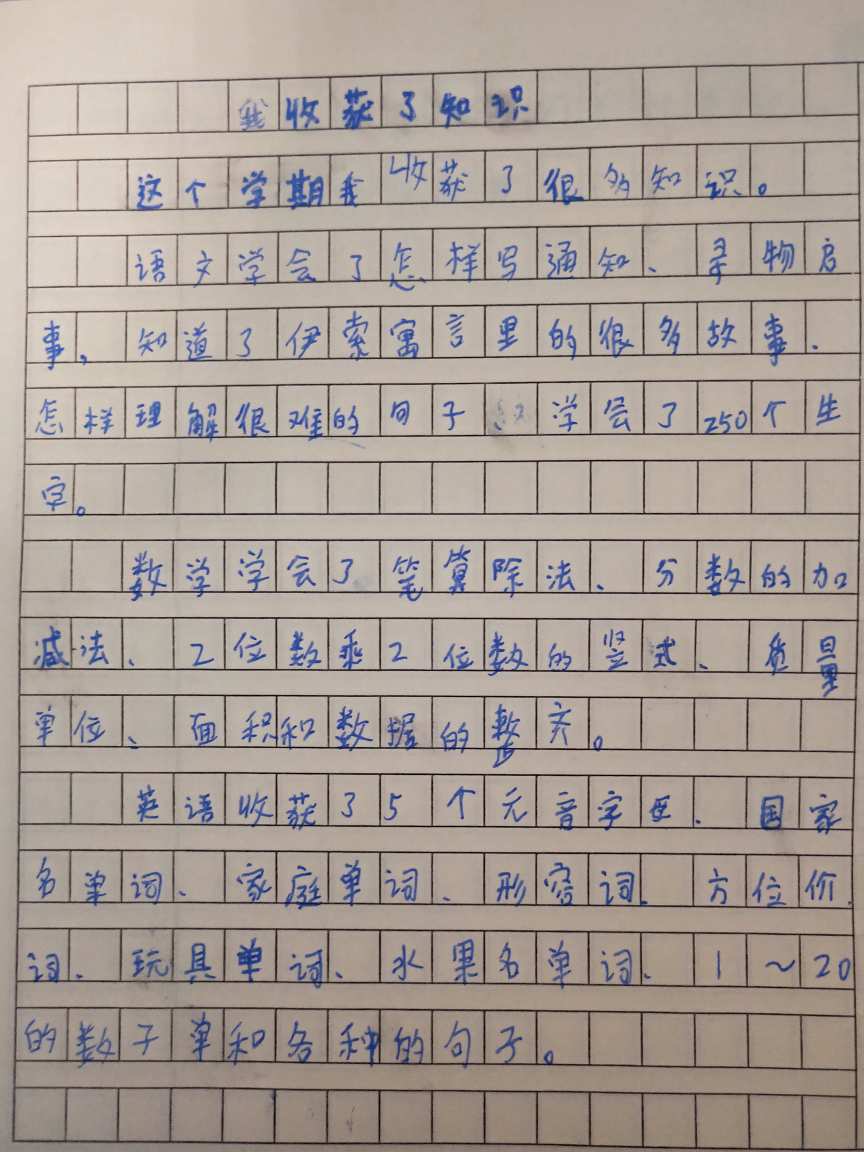 我收获了知识
这个学期我收获了很多知识。
语文学会了怎样写通知、寻物启
事,知道了伊索寓言里的很多故事.
怎样理解很难的句子、学会了250个生
字。
数学学会了笔算除法、分数的加
减法、2位数乘2位数的竖式、质量
单位、面积和数据的整齐。
英语收获了5个元音字母、国家
名单词、家庭单词、形容词、方位价
词、玩具单词、水果名单词、1~20
的数子单和各种的句子。